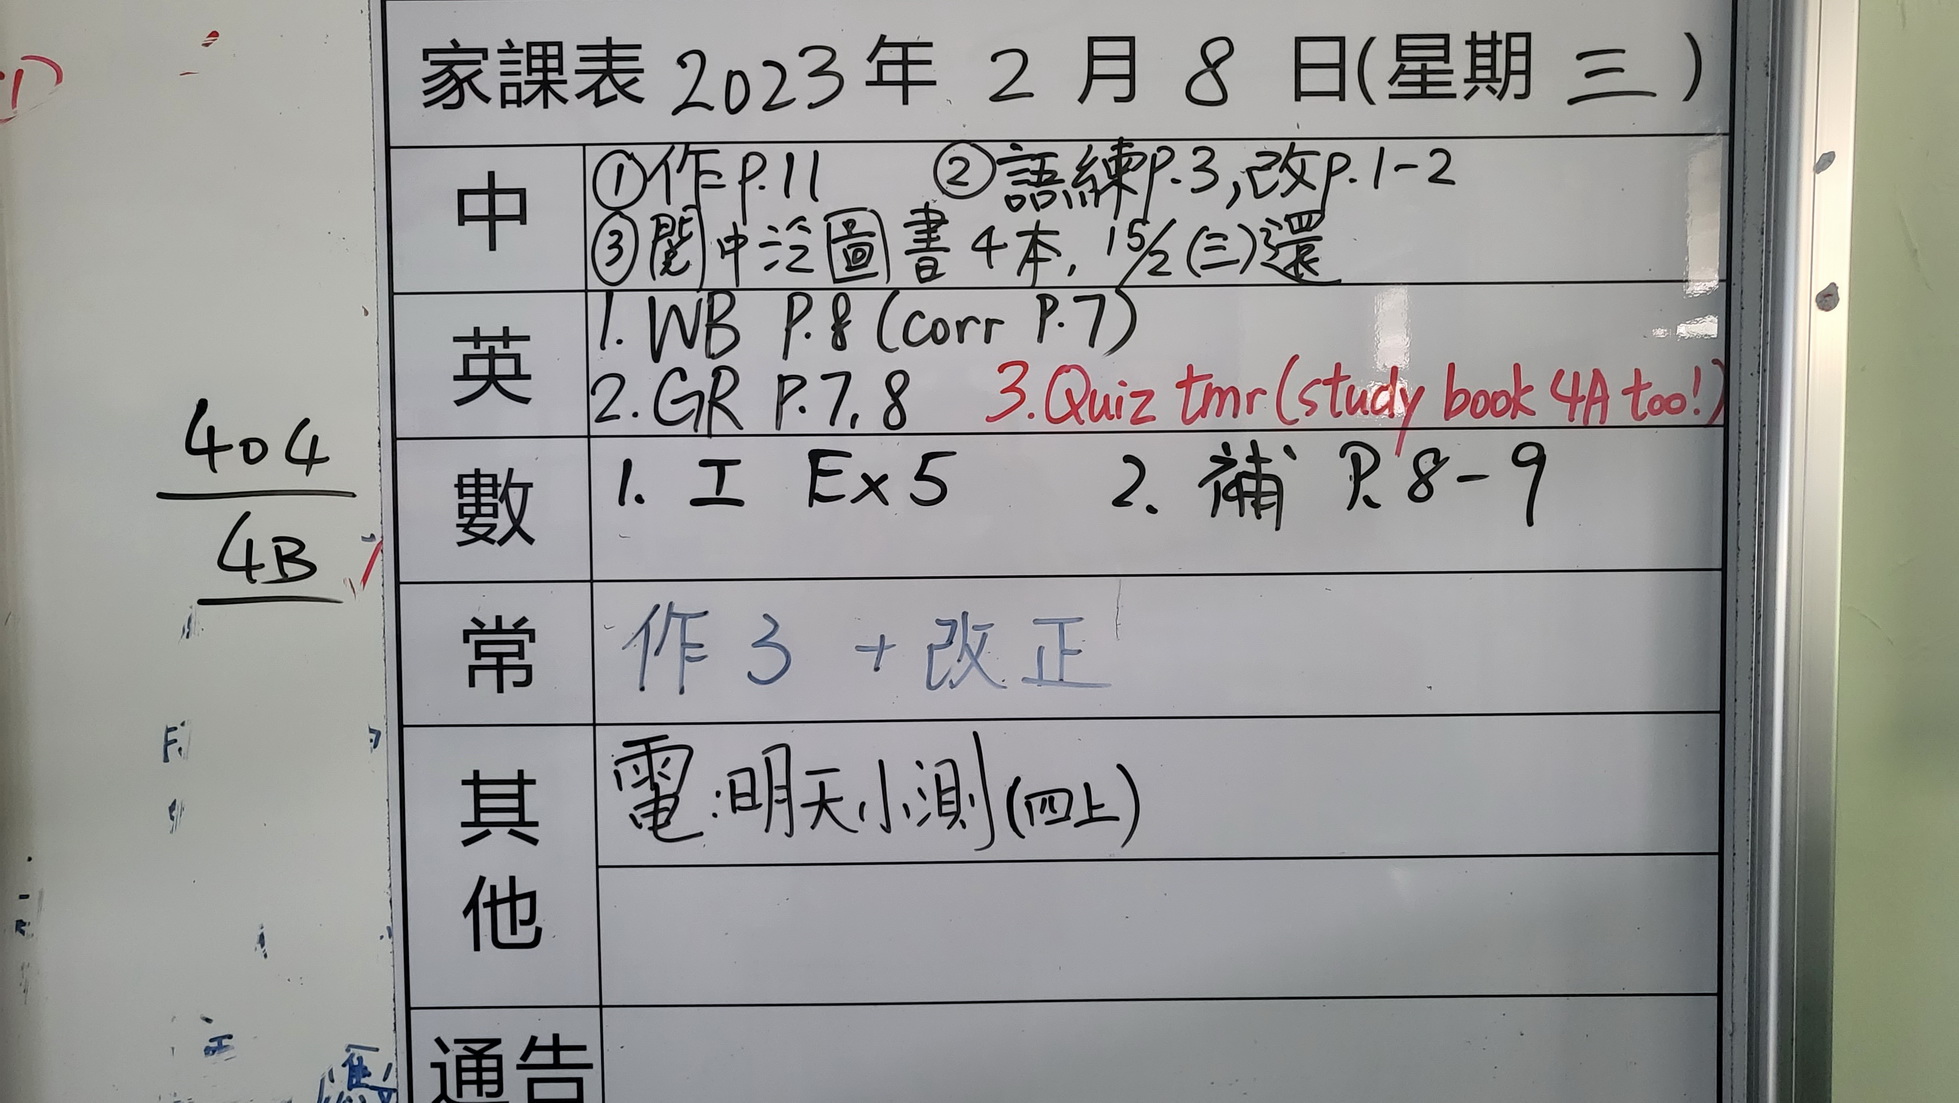 家課表 2023年 2 月 8 日(星期 三 )
中
①作P.11 ②語練P.3,改P.1-2
③閱中泛圖書4本, 15/2(三)還
英
1. WB P.8 (corr P.7)
2. GR P.7, 8 3. Quiz tmr (study book 4A too!)
數
1. 工 Ex 5 2. 補 P.8-9
404
4B
常
作 3 + 改正
其他
電:明天小測(四上)
通告